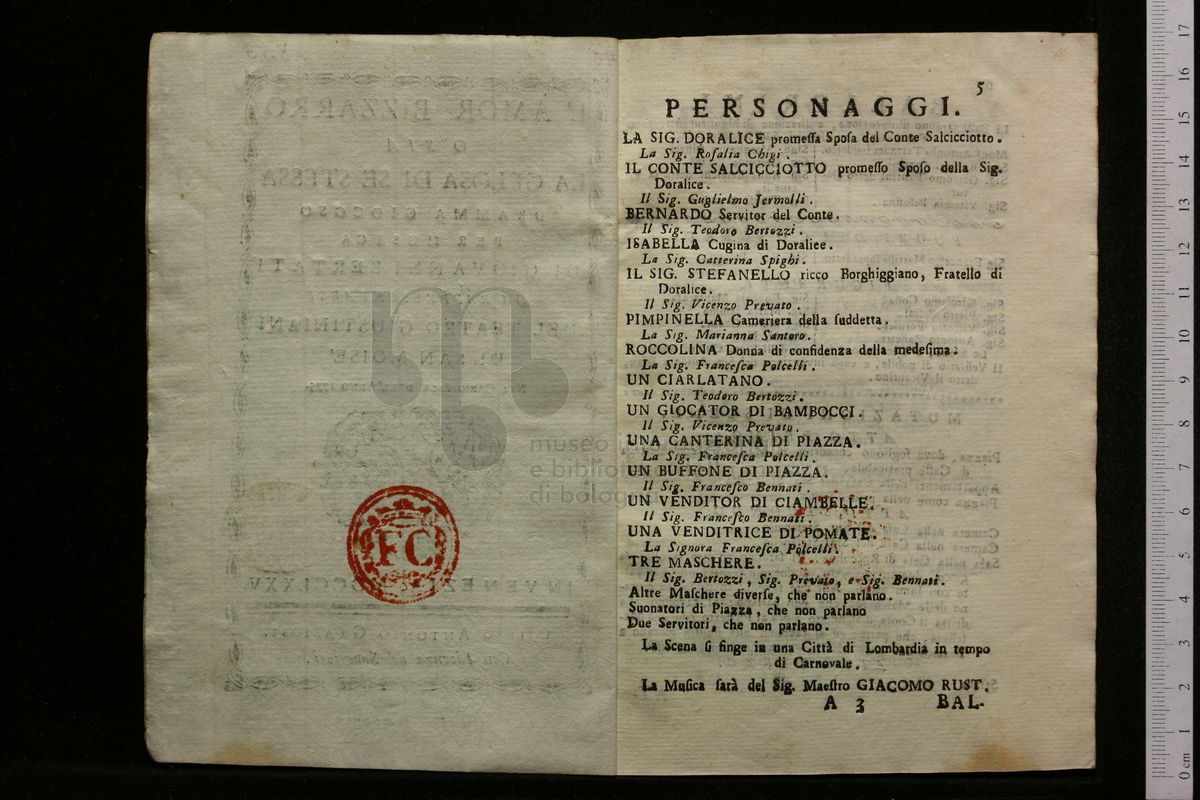 5
PERSONAGGI.
LA SIG. DORALICE promeſſa Spoſa del Conte Salcicciotto.
La Sig. Roſalia Chigi.
IL CONTE SALCICCIOTTO promeſſo Spoſo della Sig.
Doralice.
Il Sig. Guglielmo Jermolli.
BERNARDO Servitor del Conte.
Il Sig. Teodoro Bertozzi.
ISABELLA Cugina di Doralice.
La Sig. Catterina Spighi.
IL SIG. STEFANELLO ricco Borghiggiano, Fratello di
Doralice.
Il Sig. Vicenzo Prevato.
PIMPINELLA Cameriera della ſuddetta.
La Sig. Marianna Santoro.
ROCCOLINA Donna di confidenza della medeſima.
La Sig. Franceſca Polcelli.
UN CIARLATANO.
Il Sig. Teodoro Bertozzi.
UN GIOCATOR DI BAMBOCCI.
Il Sig. Vicenzo Prevato.
UNA CANTERINA DI PIAZZA.
La Sig. Franceſca Polcelli.
UN BUFFONE DI PIAZZA.
Il Sig. Franceſco Bennati.
UN VENDITOR DI CIAMBELLE.
Il Sig. Franceſco Bennati.
UNA VENDITRICE DI POMATE.
La Signora Franceſca Polcelli.
TRE MASCHERE.
Il Sig. Bertozzi, Sig. Prevato, e Sig. Bennati.
Altre Maſchere diverſe, che non parlano.
Suonatori di Piazza, che non parlano
Due Servitori, che non parlano.
La Scena ſi finge in una Città di Lombardia in tempo
di Carnovale.
La Muſica ſarà del Sig. Maeſtro GIACOMO RUST.
A 3 BAL-
FC
museo
e biblio
di bolog
0 cm 1 2 3 4 5 6 7 8 9 10 11 12 13 14 15 16 17